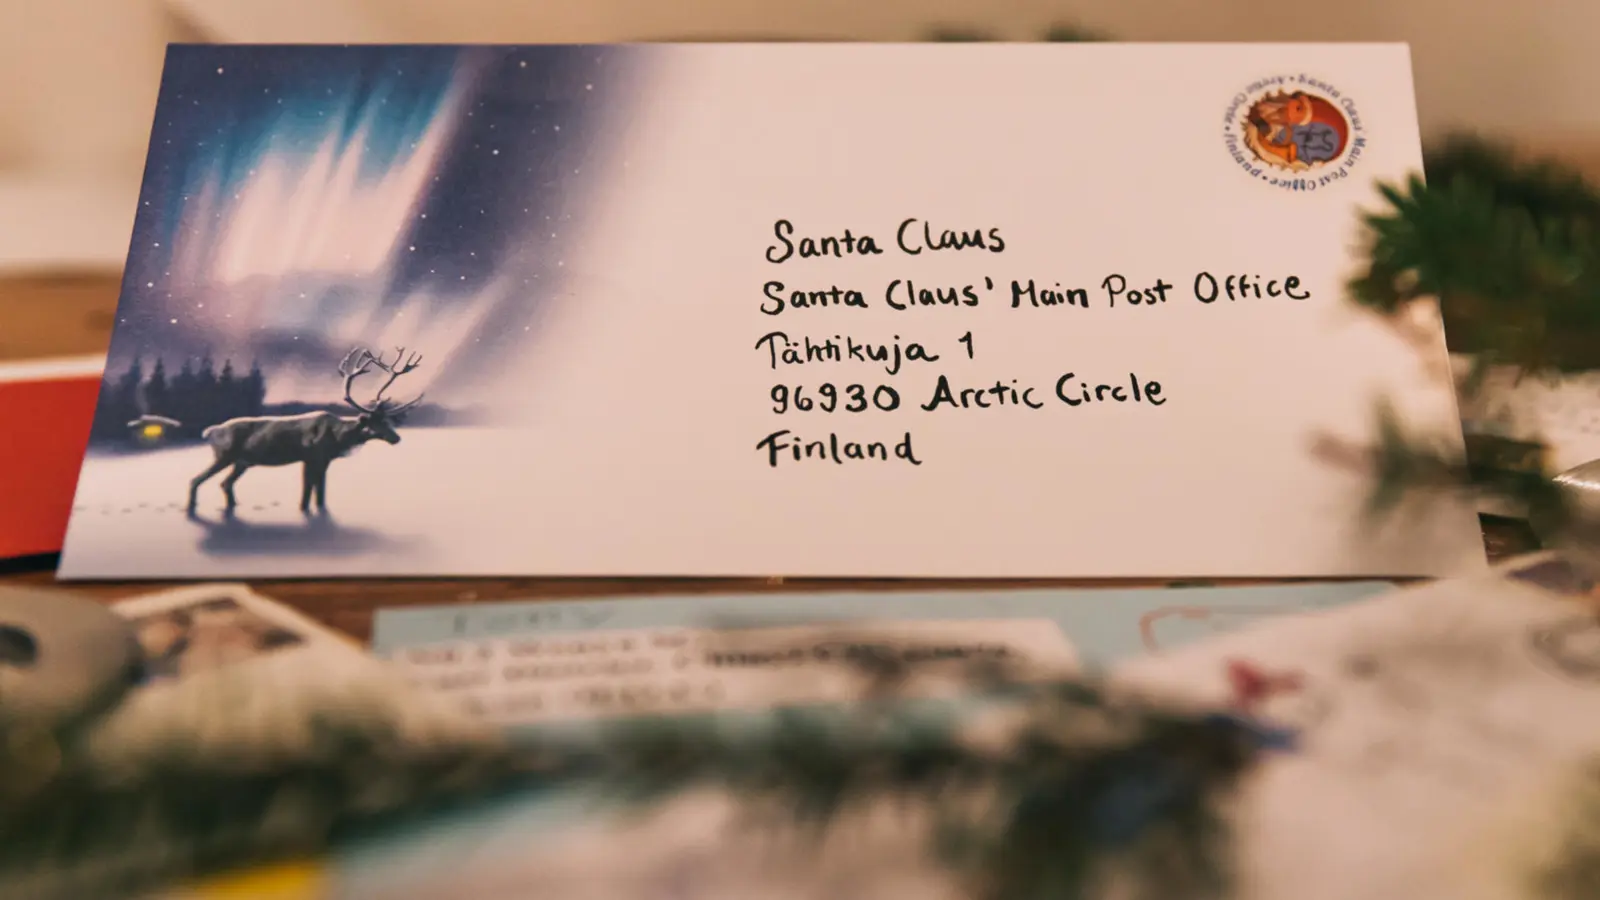 Santa Claus Main Post Office • Arctic Circle • Finland •
Santa Claus
Santa Claus' Main Post Office
Tähtikuja 1
96930 Arctic Circle
Finland